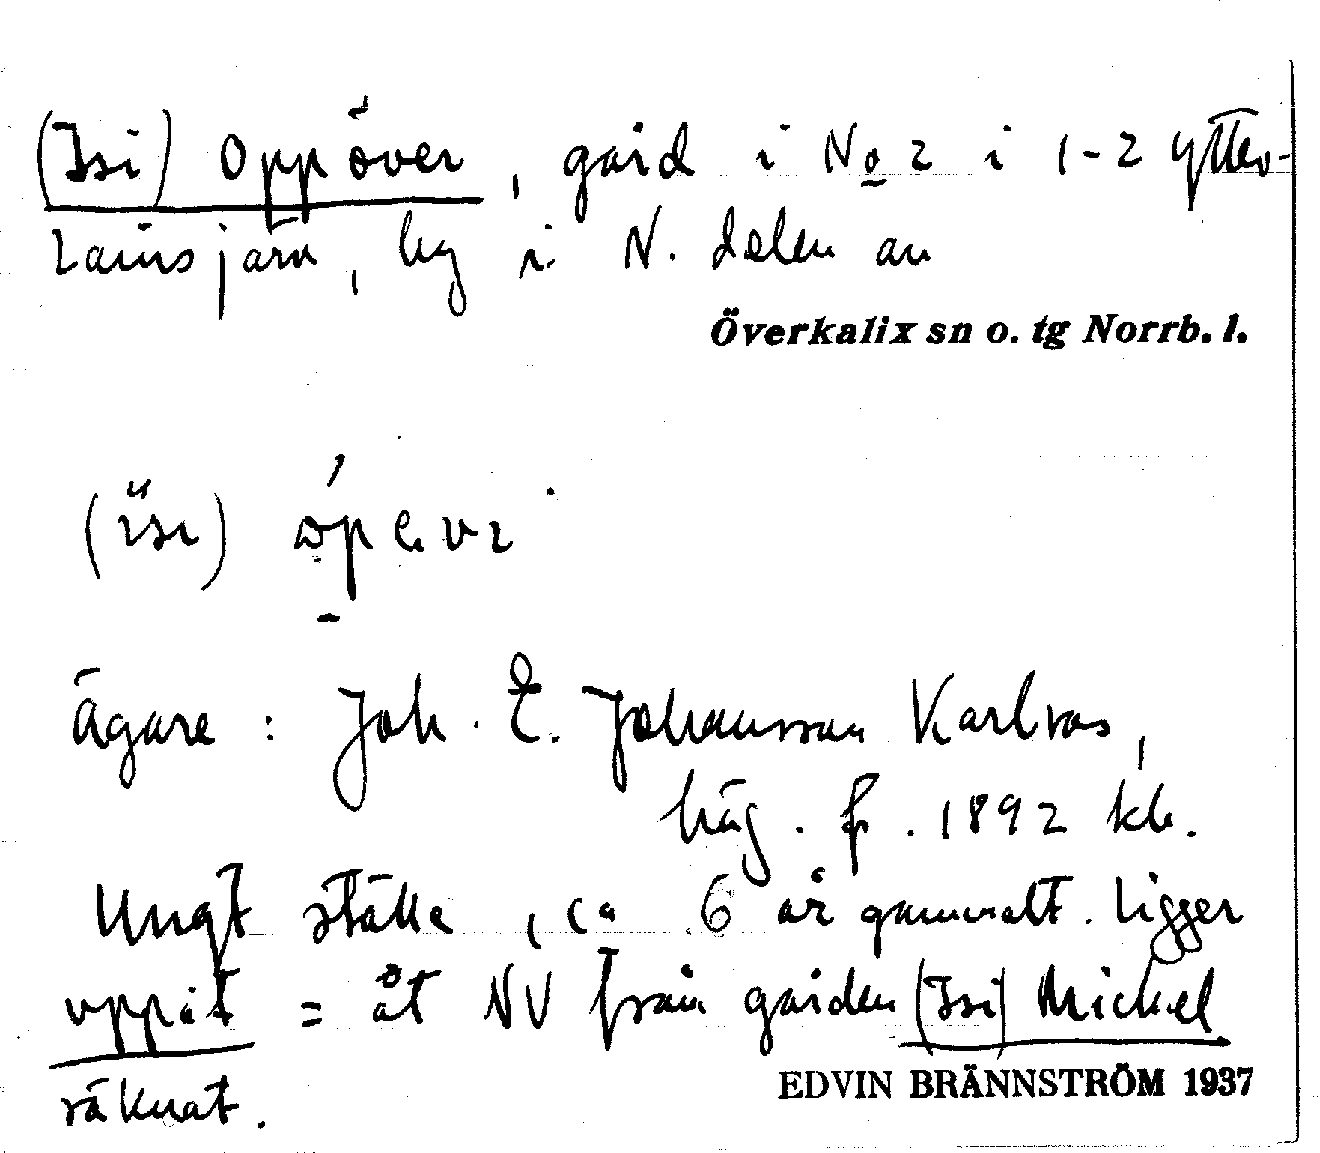 (Isi) Oppöver, gård i No 2 i 1-2 Ytter-
Lansjärv, by i N. delen av
Överkalix sn o. tg Norrb. l.
(isi)
ägare: Joh. E. Johansson Karlvas,
häg. f. 1892 kb.
Ungt ställe, ca 6 år gammalt. Ligger
uppåt = åt NV från gården (Isi) Mickel
räknat.
EDVIN BRÄNNSTRÖM 1937